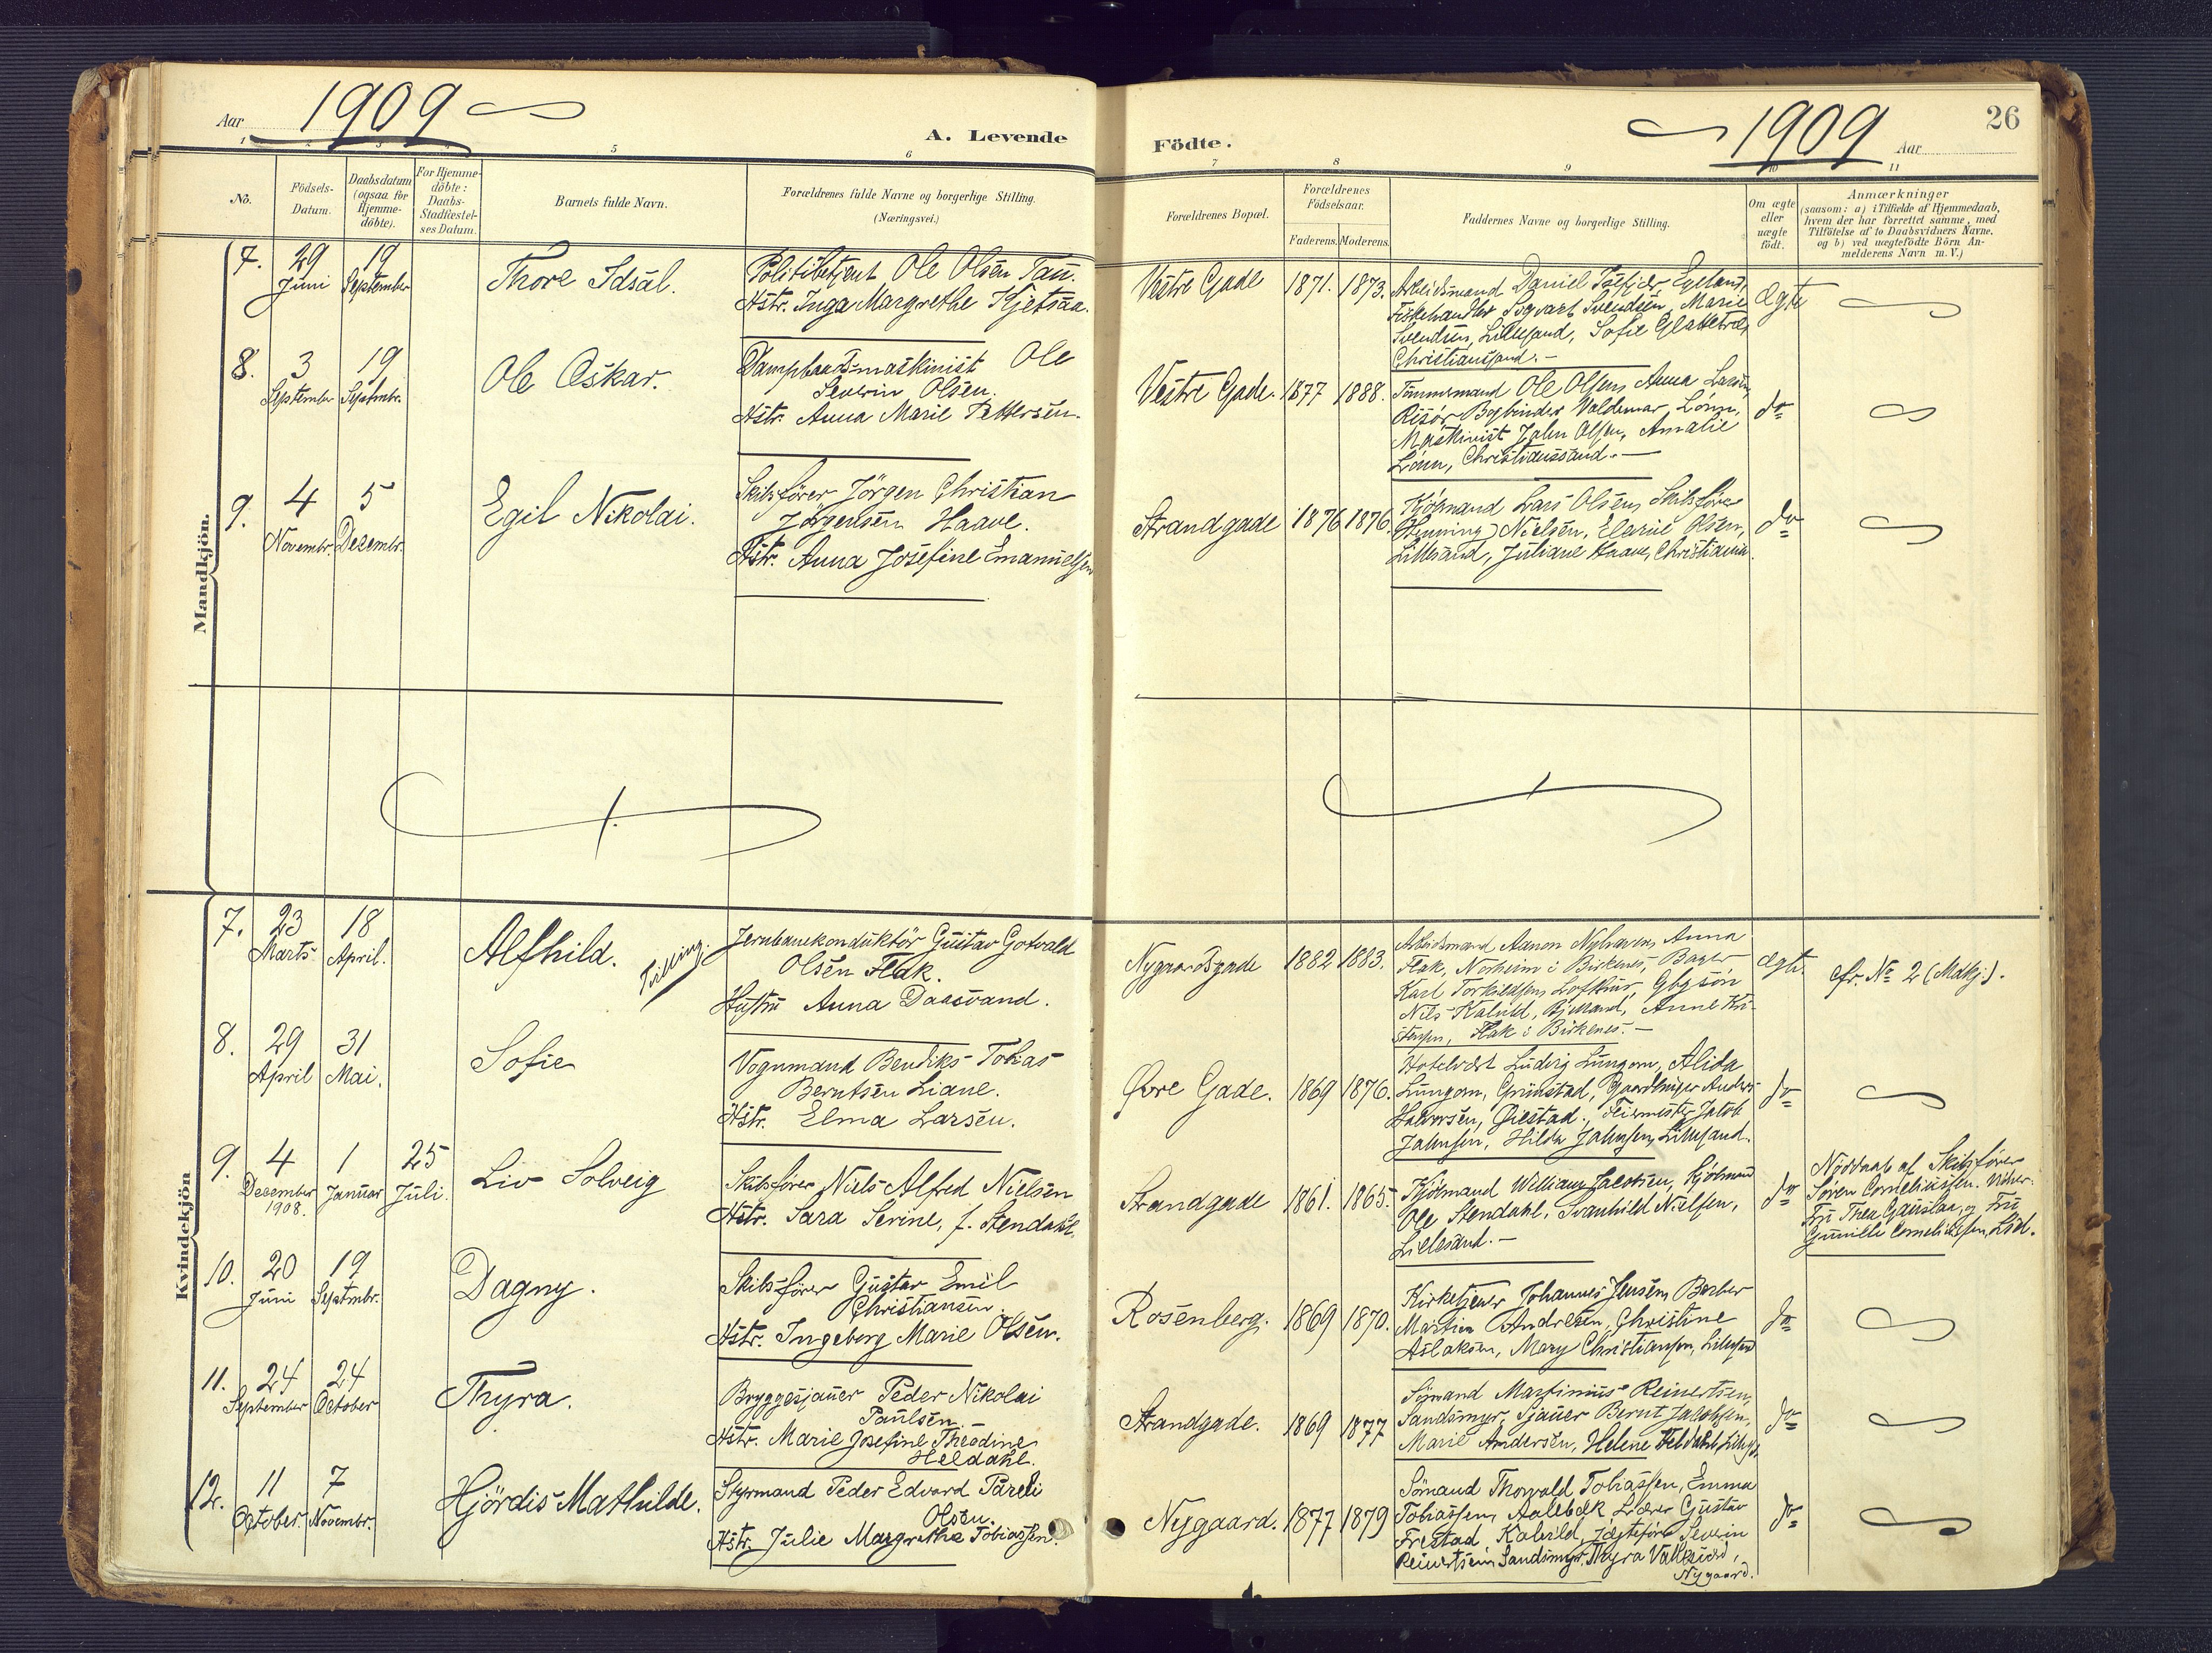 Aar 1909
A. Levende
1 2 3 5 6
No.
Födsels-
Datum.
Daabsdatum
(ogsaa for
Hjemme-
döbte).
For Hjemme-
döbte:
Daabs-
Stadfæstel-
ses Datum.
Barnets fulde Navn.
Forældrenes fulde Navne og borgerlige Stilling.
(Næringsvei.)
Mandkjön.
7. 29 Juni 19 September
Thore Idsal.
Politibetjent Ole Olsen Tau.
Hstr. Inga Margrethe Kjetsaa.
8. 3 September 19 Septmbr.
Ole Oskar.
Dampbaadsmaskinist Ole
Severin Olsen.
Hstr. Anna Marie Pettersen.
9. 4 Novembr. 5 Dezembr.
Egil Nikolai.
Skibsfører Jörgen Christian
Jörgensen Haave.
Hstr. Anna Josefine Emanuelsen
Kvindekjön
7. 23 Marts 18 April.
Alfhild. Tvilling.
Jernbanekonduktör Gustav Gotvald
Olsen Flak.
Hustru Anna Daasvand.
8. 29 April 31 Mai.
Sofie
Vognmand Bendiks Tobias
Berntsen Liane.
Hstr. Elma Larsen.
9. 4 Dezember 1908. 1 Januar 25 Juli.
Liv Solveig
Skibsfører Niels Alfred Nielsen
Hstr. Sara Serine, f. Stendahl.
10. 20 Juni 19 Septmbr.
Dagny.
Skibsfører Gustav Emil
Christiansen.
Hstr. Ingeborg Marie Olsen.
11. 24 September 24 October
Thyra.
Bryggesjauer Peder Nikolai
Paulsen.
Hstr. Marie Josefine Theodine
Heldahl.
12. 11 October. 7 Novembr.
Hjördis Mathilde.
Styrmand Peder Edvard Pareli
Olsen.
Hstr. Julie Margrethe Tobiassen.
26
1909 Aar
Födte.
7 8 9 10 11
Forældrenes Bopæl.
Forældrenes
Födselsaar.
Faderens. Moderens.
Faddernes Navne og borgerlige Stilling.
Om ægte
eller
uægte
födt.
Anmærkninger
(saasom: a) i Tilfælde af Hjemmedaab,
hvem der har forrettet samme, med
Tilföielse af to Daabsvidners Navne.
og b) ved uægtefödte Börn An-
melderens Navn m. V.)
Vestre Gade 1871. 1873.
Arbeidsmand Daniel Egeland,
Fiskehandler Sigvart Svendsen, Marie
Svendsen, Lillesand, Sofie
Christianssand.
Ægte
Vestre Gade. 1877 1888.
Tømmermand Ole Olsen, Anna Larsen,
Risör, Bogbinder Valdemar Lönn,
Maskinist John Olsen, Amalie
Lönn, Christianssand.
do
Strandgade 1876 1876
Kjöbmand Lars Olsen, Skibsfører
Henning Nielsen, Elarie Olsen,
Lillesand, Juliane Haave, Christiania.
do
Nygaardsgade 1882 1883.
Arbeidsmand Aanon Anna
Flak, Norheim i Birkenes, Bager
Karl Torkildsen, Gbgsøn
Nils Kalvild, Anne Kri-
stensen, Flak i Birkenes.
Ægte. cfr. No 2 (Mdkj.).
Øvre Gade. 1869 1876.
Hotelvært Ludvig Lungom, Alida
Lungom, Grimstad, Gaardbruger Anders
Halvorsen, Øiestad, Feiermester Jakob
Jahnsen, Hilda Jahnsen, Lillesand.
do
Strandgade 1861. 1865
Kjöbmand William Jacobsen, Kjöbmand
Ole Stendahl, Svanhild Nielsen,
Lillesand.
do
Nöddaab af Skibsfører
Søren Corneliussen. Vidner:
Fru Thea og Fru
Gunille Corneliussen, Lsd.
Rosenberg. 1869 1870.
Kirketjener Johannes Jensen, Barber
Martin Andresen, Christine
Aslaksen, Mary Christiansen, Lillesand
do
Strandgade. 1869 1877
Sømand Martinius Reinertsen,
Sandsmyr, Sjauer Bernt Jacobsen,
Marie Andersen, Helene Heldahl, Lillesd.
do
Nygaard. 1877 1879
Sömand Thorvald Tobiassen, Emma
Tobiassen, Aalebæk, Lærer Gustav
Frestad, Kalvild, Jægtefører Severin
Reinertsen, Sandsmyr, Thyra
Nygaard.
do